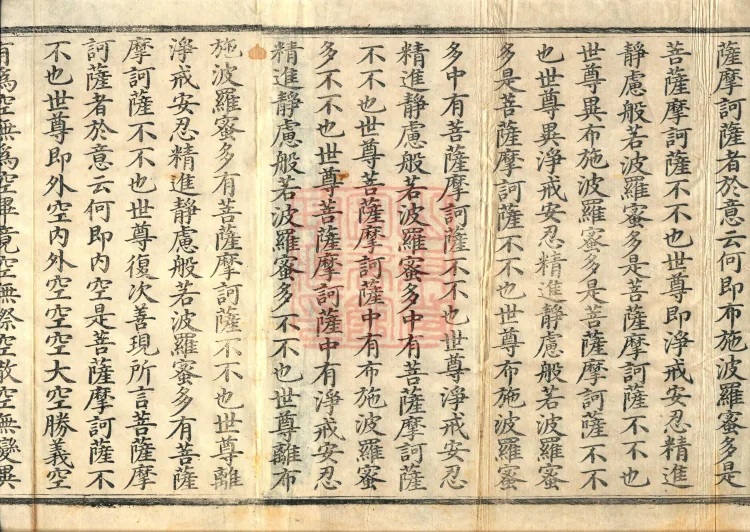 薩摩訶薩者於意云何即布施波羅蜜多是
菩薩摩訶薩不不也世尊即淨戒安忍精進
靜慮般若波羅蜜多是菩薩摩訶薩不不也
世尊異布施波羅蜜多是菩薩摩訶薩不不
也世尊異淨戒安忍精進靜慮般若波羅蜜
多是菩薩摩訶薩不不也世尊布施波羅蜜
多中有菩薩摩訶薩不不也世尊淨戒安忍
精進靜慮般若波羅蜜多中有菩薩摩訶薩
不不也世尊菩薩摩訶薩中有布施波羅蜜
多不不也世尊菩薩摩訶薩中有淨戒安忍
精進靜慮般若波羅蜜多不不也世尊離布
施波羅蜜多有菩薩摩訶薩不不也世尊離
淨戒安忍精進靜慮般若波羅蜜多有菩薩
摩訶薩不不也世尊復次善現所言菩薩摩
訶薩者於意云何即內空是菩薩摩訶薩不
不也世尊即外空內外空空空大空勝義空
有為空無為空畢竟空無際空散空無變異